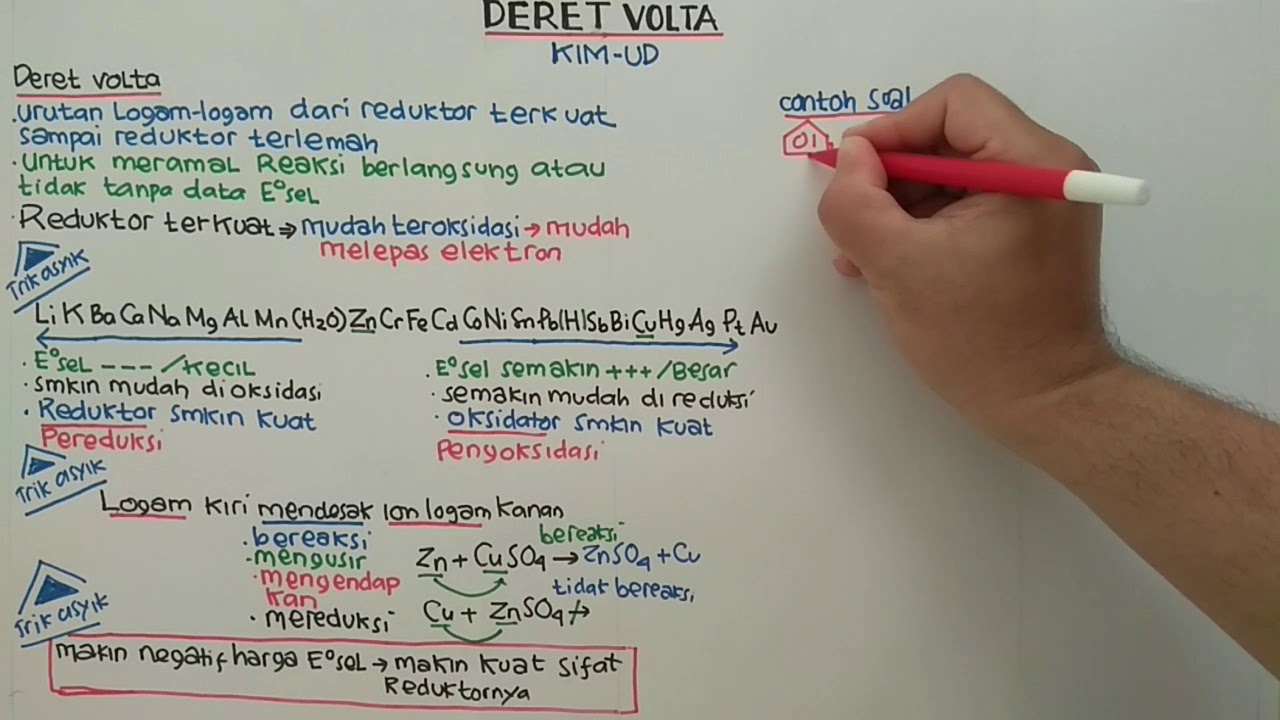 DERET VOLTA
KIM-UD
Deret volta
.urutan Logam-logam dari reduktor terkuat
sampai reduktor terlemah
.untuk meramal Reaksi berlangsung atau
tidak tanpa data E°sel
.Reduktor terkuat⇒mudah teroksidasi→mudah
melepas elektron
Trik asyik
Li K Ba Ca Na Mg Al Mn(H2O)Zn Cr Fe Cd Co Ni Sn Pb(H)Sb Bi Cu Hg Ag Pt Au
.E°sel ---/kecil
.smkin mudah dioksidasi
.Reduktor smkin kuat
Pereduksi
.E°sel semakin +++/Besar
.semakin mudah di reduksi
.oksidator smkin kuat
Pengoksidasi
Trik asyik
Logam kiri mendesak ion logam kanan
.bereaksi
.mengusir
.mengendap
kan
.mereduksi
bereaksi
Zn + CuSO4 → ZnSO4 + Cu
tidat bereaksi
Cu + ZnSO4 ↛
Trik asyik
makin negatif harga E°sel → makin kuat sifat
Reduktornya
contoh soal
01